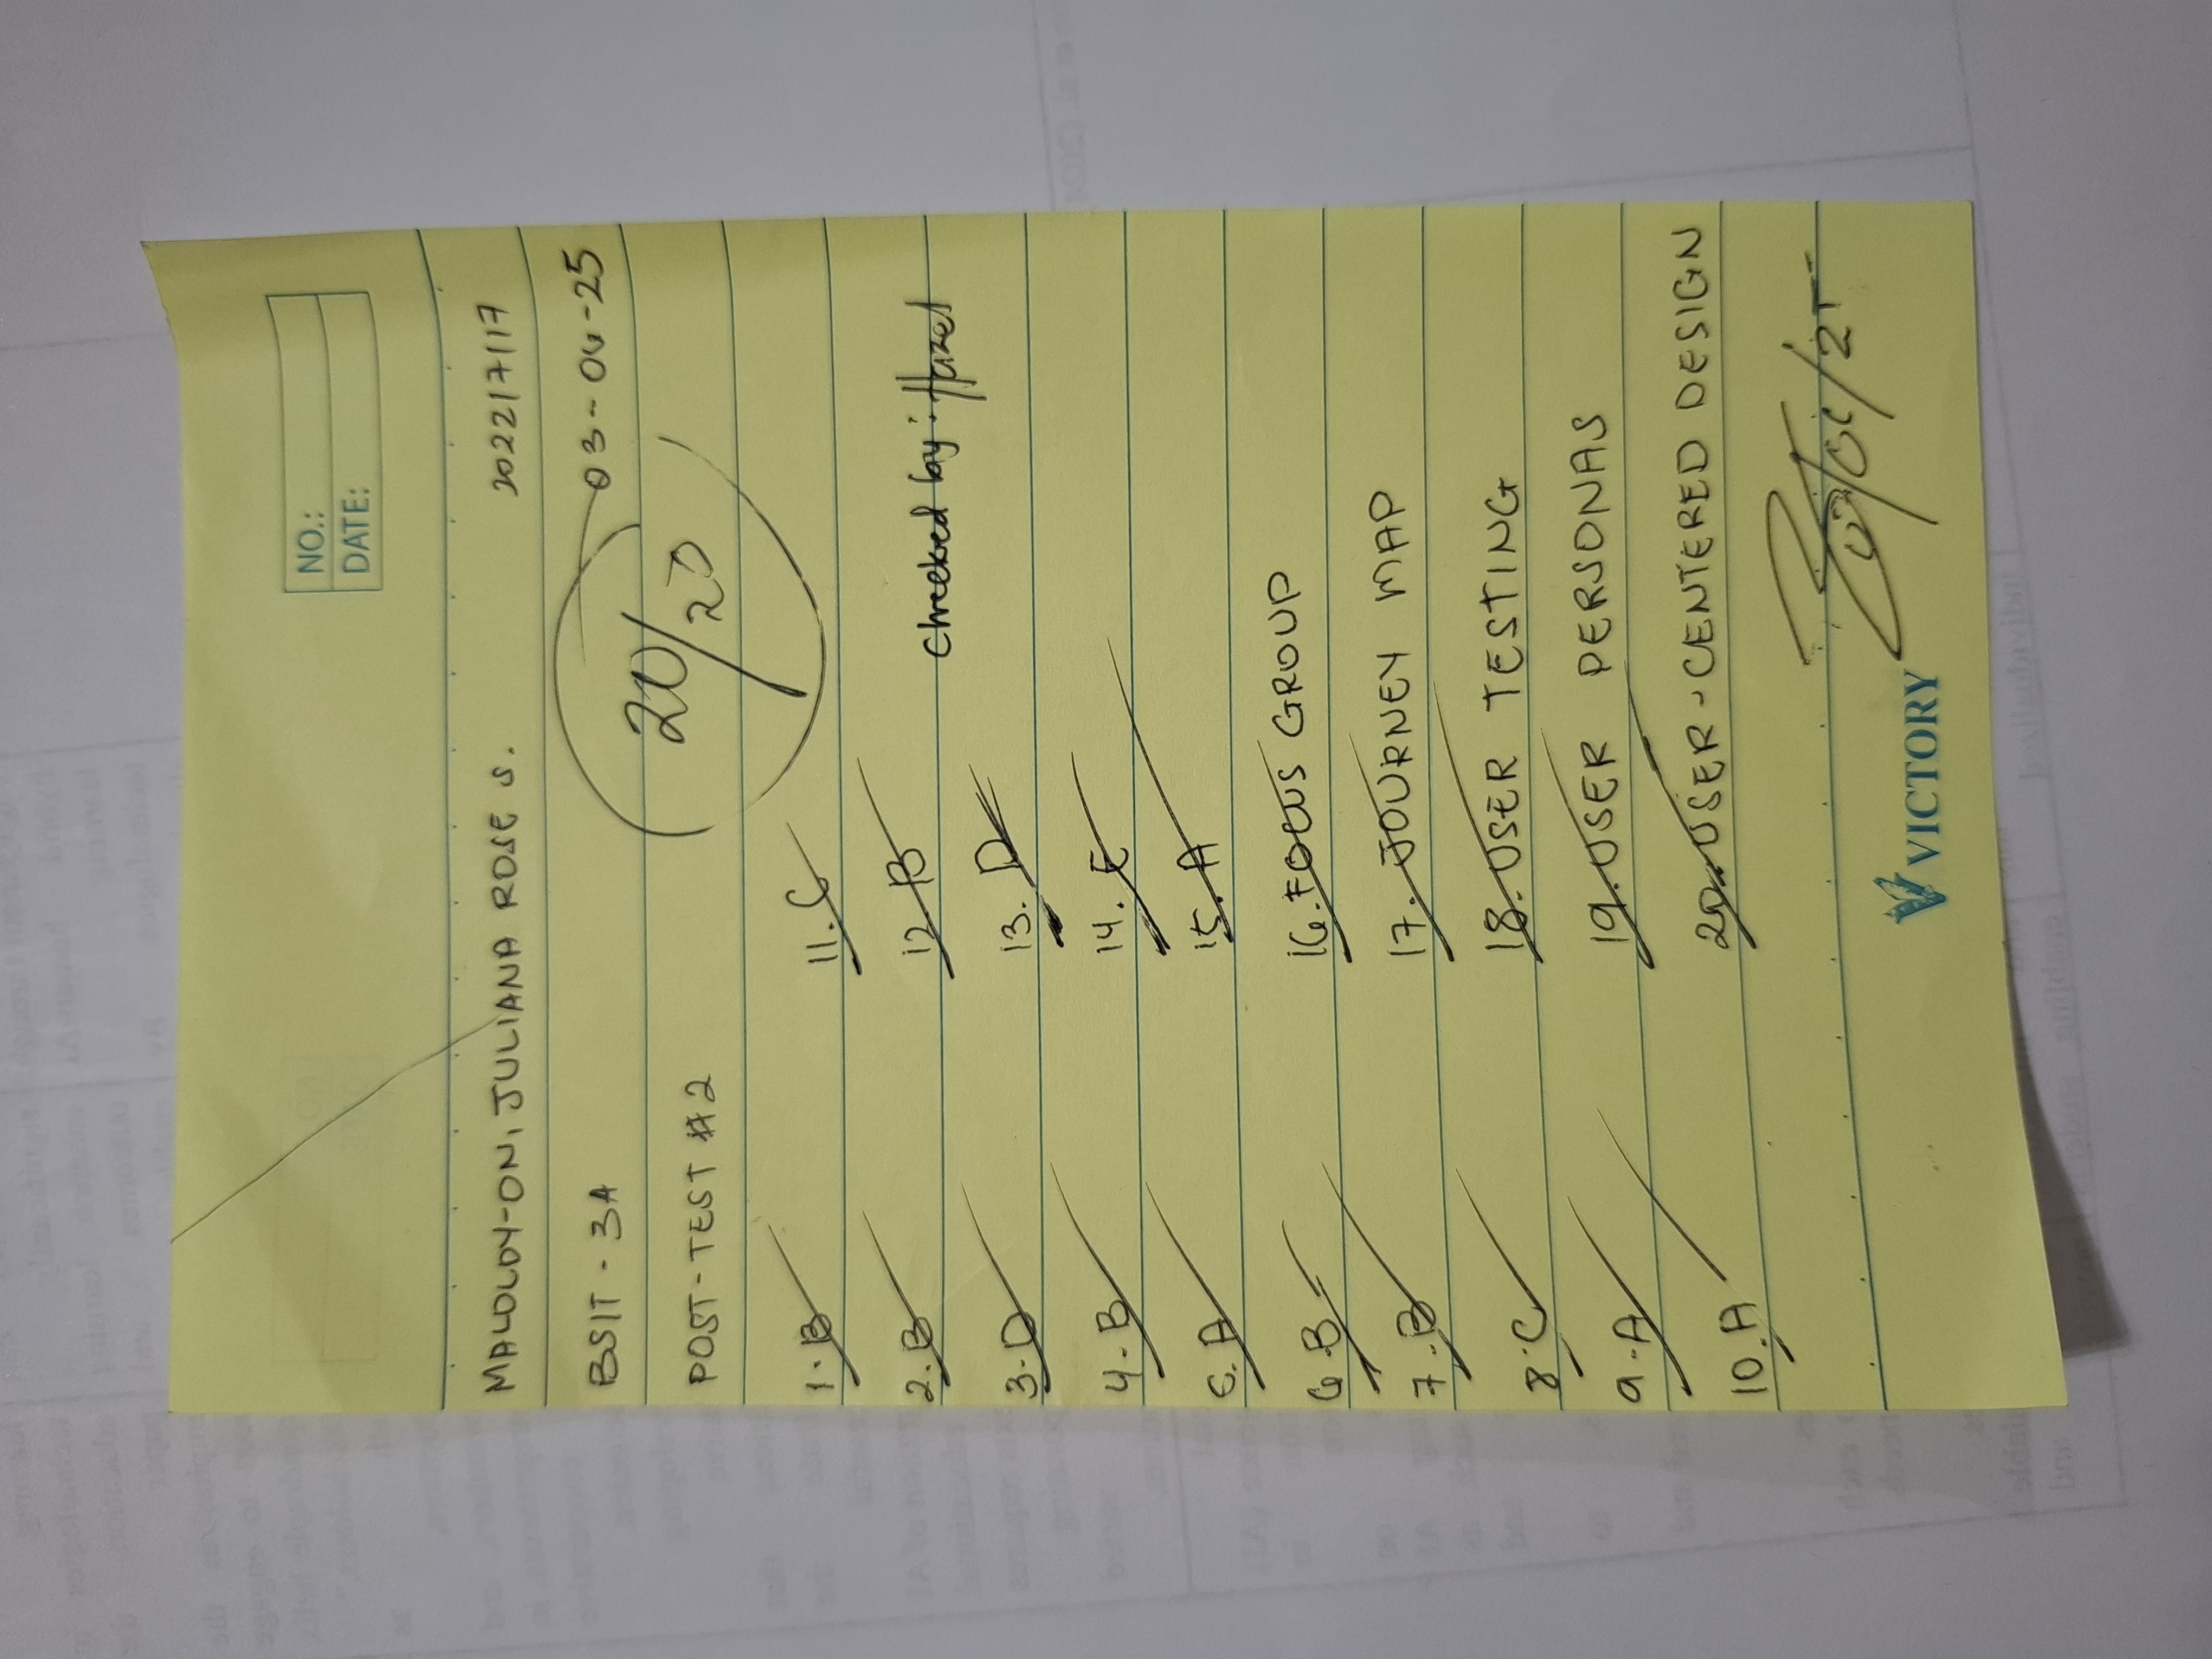 NO.:
DATE:
MALOLOY-ON, JULIANA ROSE S. 202217117
BSIT - 3A 03-06-25
POST-TEST #2
20/20
1. B
2. B
3. D
4. B
5. A
6. B
7. B
8. C
9. A
10. A
11. C
12. B
13. D
14. E
15. A
16. FOCUS GROUP
17. JOURNEY MAP
18. USER TESTING
19. USER PERSONAS
20. USER-CENTERED DESIGN
Checked by: Hazel
03/06/25
VICTORY